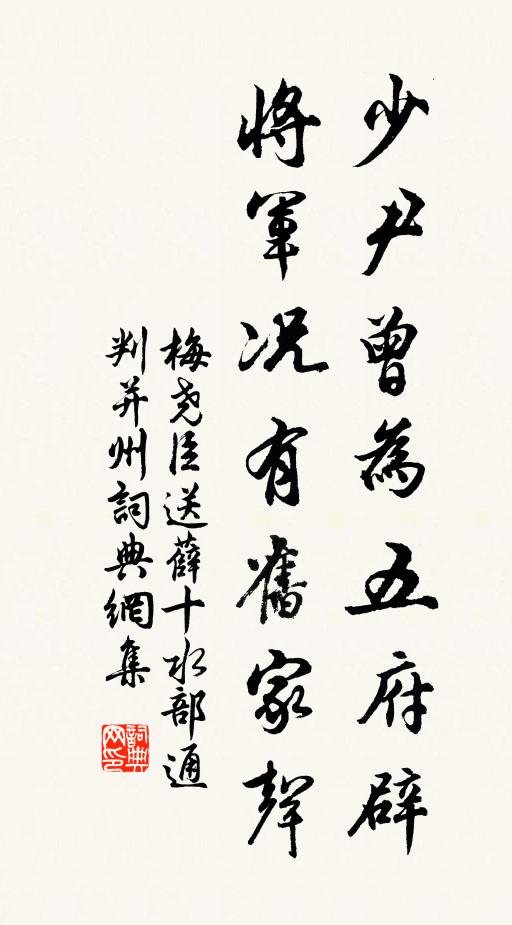 少尹曾為五府辟
將軍況有舊家聲
梅堯臣送薛十水部通
判并州詞典網集
詞典网印